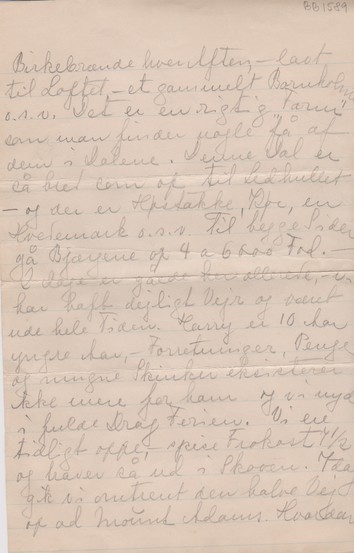 BB1589
Birkebrænde hver Aften, - lavt
til Loftet, - et gammelt Barnkols
o.s.v. Det er en rigtig "Farm"
som man finder nogle få af
dem i Dalene. Denne Dal er
så bred som op til
- og der er Høstakke, Køer, en
Hvedemark o.s.v. Til begge Sider
gå Bjærgene op 4 a 6000 Fod. -
2 dage er gåede her allerede, - vi
har haft dejligt Vejr og været
ude hele Tiden. Harry er 10 Aar
yngre Aar, - Forretninger, Penge
og mugne Skinker eksisterer
ikke mere for ham og vi nyder
i fulde Drag Ferien. Vi er
tidligt oppe, - spise Frokost 7½
og haver så ud i Skoven. Idag
gik vi omtrent den halve Vej
op ad Mount Adams.